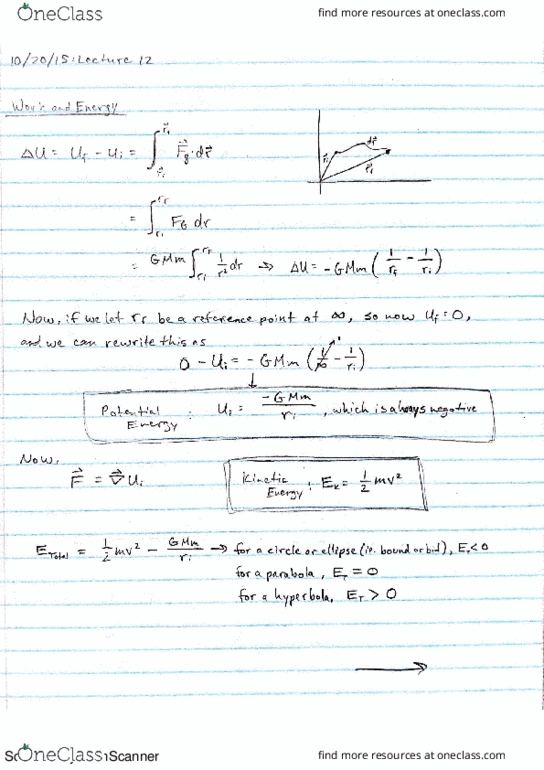 OneClass find more resources at oneclass.com
10/20/15: Lecture 12
Work and Energy
ΔU = U_f - U_i = ∫_{r⃗_i}^{r⃗_f} F⃗_g · dr⃗
dr⃗
r⃗_i
r⃗_f
= ∫_{r_i}^{r_f} F_G dr
= GMm ∫_{r_i}^{r_f} 1/r² dr ⇒ ΔU = -GMm (1/r_f - 1/r_i)
Now, if we let r_f be a reference point at ∞, so now U_f = 0,
and we can rewrite this as
0 - U_i = -GMm (1/∞ - 1/r_i)
↓
Potential Energy : U_i = -GMm/r_i , which is always negative
Now,
F⃗ = ∇⃗U_i
Kinetic Energy : E_k = 1/2 mv²
E_Total = 1/2 mv² - GMm/r_i → for a circle or ellipse (ie. bound orbit), E_T < 0
for a parabola, E_T = 0
for a hyperbola, E_T > 0
→
OneClass Scanner find more resources at oneclass.com